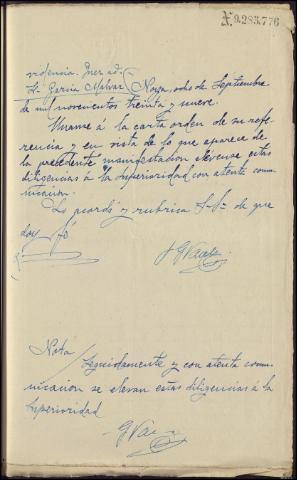 X.9.283.776
videncia. Juez ad.
Sr. García Malvar Noya, ocho de Septiembre
de mil novecientos treinta y nueve.
Unase á la carta orden de su refe
rencia y en vista de lo que aparece de
la precedente manifestacion elévense estas
diligencias á la Superioridad con atenta comu
nicacion.
Lo acordó y rubrica S.Sª de que
doy fé
Nota
Seguidamente y con atenta comu
nicacion se elevan estas diligencias á la
Superioridad